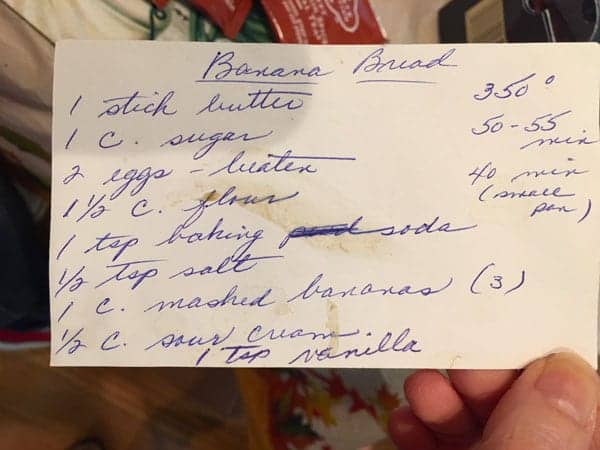 Banana Bread
350°
50-55 min
40 min
(small pan)
1 stick butter
1 c. sugar
2 eggs - beaten
1 1/2 c. flour
1 tsp baking soda
1/2 tsp salt
1 c. mashed bananas (3)
1/2 c. sour cream
1 tsp vanilla